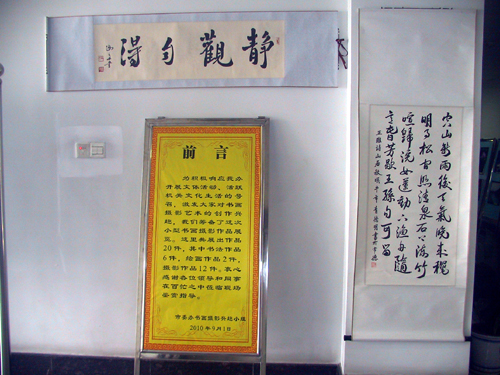 静觀自得
前言
为积极响应我办
开展文体活动，活跃
机关文化生活的号
召，激发大家对书画
摄影艺术的创作兴
趣，我们筹备了这次
小型书画摄影作品展
览。这里共展出作品
20件，其中书法作品
6件，绘画作品2件，
摄影作品12件。衷心
感谢各位领导和同事
在百忙之中莅临现场
鉴赏指导。
市委办书画摄影兴趣小组
2010年9月1日
空山新雨後天氣晚来穐
明月松间照清泉石上流竹
喧歸浣女莲动下渔舟隨
意春芳歇王孫自可留
王维诗山居秋暝